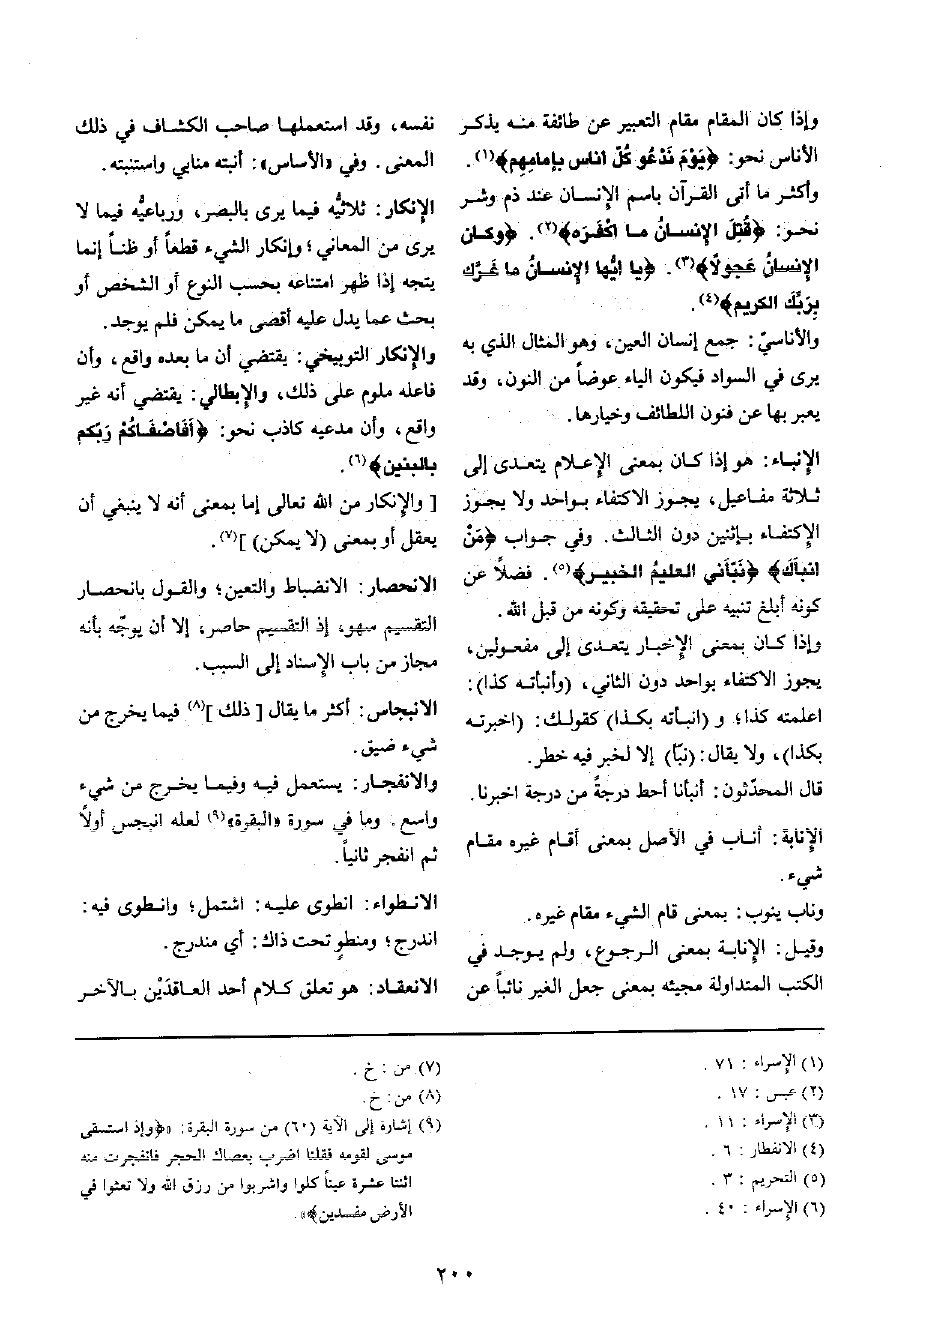 وإذا كان المقام مقام التعبير عن طائفة منه يذكر
الأناس نحو: ﴿يَوْمَ نَدْعُو كُلّ أناس بإمامِهِم﴾(١).
وأكثر ما أتى القرآن باسم الإنسان عند ذم وشر
نحو: ﴿قُتِلَ الإنسانُ ما اكْفَرَه﴾(٢). ﴿وكان
الإنسانُ عَجولاً﴾(٣). ﴿يا ايُّها الإنسانُ ما غَرَّك
بِرَبِّك الكريم﴾(٤).
والأناسيّ: جمع إنسان العين، وهو المثال الذي به
يرى في السواد فيكون الياء عوضاً من النون، وقد
يعبر بها عن فنون اللطائف وخيارها.
الإنباء: هو إذا كان بمعنى الإعلام يتعدى إلى
ثلاثة مفاعيل، يجوز الاكتفاء بواحد ولا يجوز
الإكتفاء بإثنين دون الثالث. وفي جواب ﴿مَنْ
انباَك﴾ ﴿نَبّأني العليمُ الخبير﴾(٥). فضلاً عن
كونه أبلغ تنبيه على تحقيقه وكونه من قبل الله.
وإذا كان بمعنى الإخبار يتعدى إلى مفعولين،
يجوز الاكتفاء بواحد دون الثاني، (وأنبأته كذا):
اعلمته كذا؛ و (انبأته بكذا) كقولك: (اخبرته
بكذا)، ولا يقال: (نبّأ) إلا لخبر فيه خطر.
قال المحدّثون: أنبأنا أحط درجةً من درجة اخبرنا.
الإنابة: أناب في الأصل بمعنى أقام غيره مقام
شيء.
وناب ينوب: بمعنى قام الشيء مقام غيره.
وقيل: الإنابة بمعنى الرجوع، ولم يوجد في
الكتب المتداولة مجيئه بمعنى جعل الغير نائباً عن
نفسه، وقد استعملها صاحب الكشاف في ذلك
المعنى. وفي «الأساس»: أنبته منابي واستنبته.
الإنكار: ثلاثيُّه فيما يرى بالبصر، ورباعيُّه فيما لا
يرى من المعاني؛ وإنكار الشيء قطعاً أو ظناً إنما
يتجه إذا ظهر امتناعه بحسب النوع أو الشخص أو
بحث عما يدل عليه أقصى ما يمكن فلم يوجد.
والإنكار التوبيخي: يقتضي أن ما بعده واقع، وأن
فاعله ملوم على ذلك، والإبطالي: يقتضي أنه غير
واقع، وأن مدعيه كاذب نحو: ﴿أفَاصْفَاكُمْ رَبّكم
بالبنين﴾(٦).
[ والإنكار من الله تعالى إما بمعنى أنه لا ينبغي أن
يعقل أو بمعنى (لا يمكن) ](٧).
الانحصار: الانضباط والتعين؛ والقول بانحصار
التقسيم سهو، إذ التقسيم حاصر، إلا أن يوجّه بأنه
مجاز من باب الإسناد إلى السبب.
الانبجاس: أكثر ما يقال [ ذلك ](٨) فيما يخرج من
شيء ضيق.
والانفجار: يستعمل فيه وفيما يخرج من شيء
واسع. وما في سورة «البقرة»(٩) لعله انبجس أولاً
ثم انفجر ثانياً.
الانطواء: انطوى عليه: اشتمل؛ وانطوى فيه:
اندرج؛ ومنطوٍ تحت ذاك: أي مندرج.
الانعقاد: هو تعلق كلام أحد العاقدَيْن بالآخر
(١) الإسراء: ٧١.
(٢) عبس: ١٧.
(٣) الإسراء: ١١.
(٤) الانفطار: ٦.
(٥) التحريم: ٣.
(٦) الإسراء: ٤٠.
(٧) من: خ.
(٨) من: خ.
(٩) إشارة إلى الآية (٦٠) من سورة البقرة: «﴿وإذ استسقى
موسى لقومه فقلنا اضرب بعصاك الحجر فانفجرت منه
اثنتا عشرة عيناً كلوا واشربوا من رزق الله ولا تعثوا في
الأرض مفسدين﴾».
٢٠٠